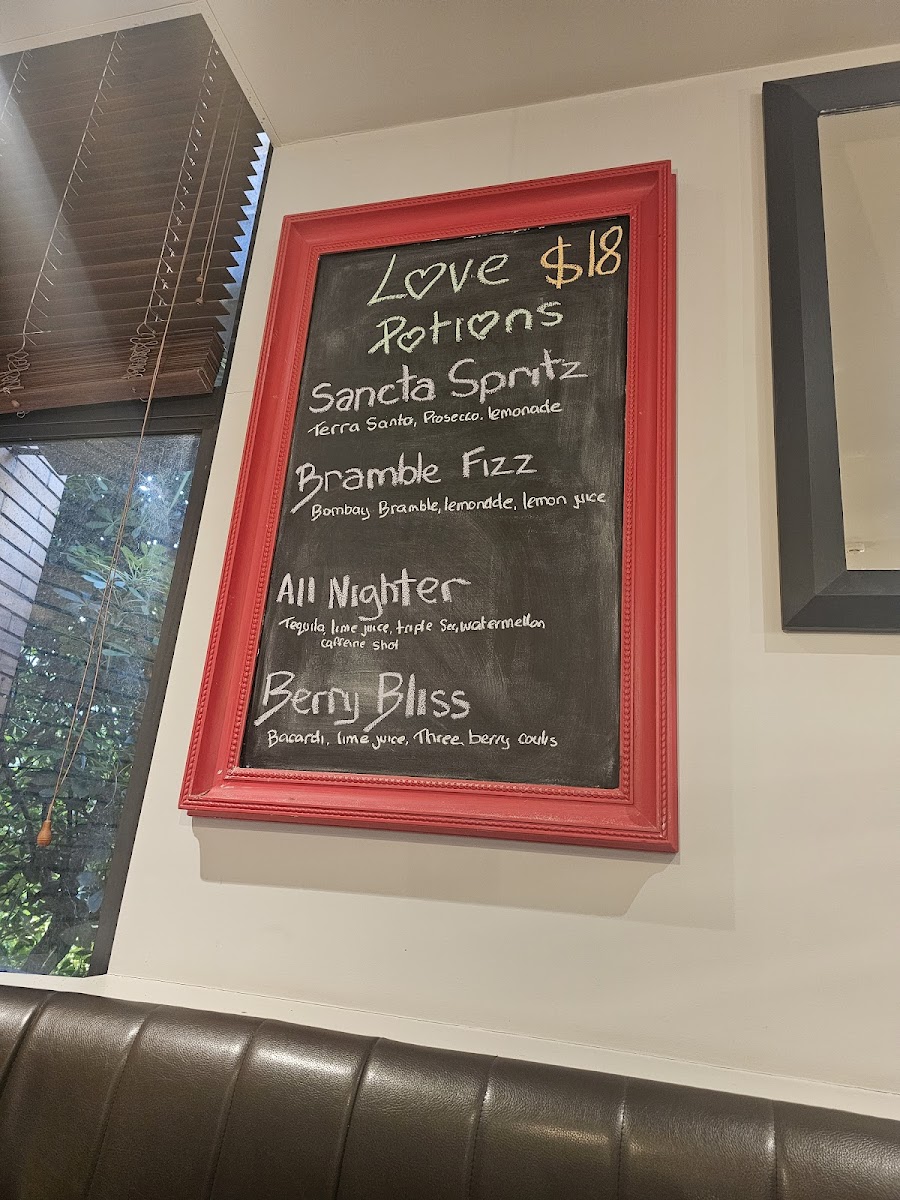 Love $18
Potions
Sancta Spritz
Terra Santa, Prosecco. lemonade
Bramble Fizz
Bombay Bramble, lemonade, lemon juice
All Nighter
Tequila, lime juice, triple Sec, watermellon
caffeine shot
Berry Bliss
Bacardi, lime juice, Three berry coulis